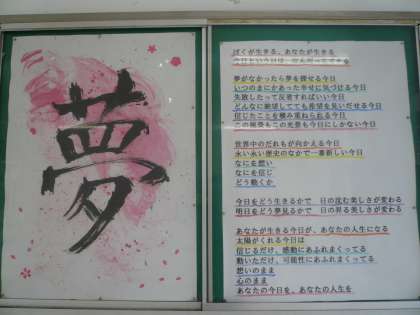 夢
ぼくが生きる、あなたが生きる
今日という日は、なんだってできる
夢がなかったら夢を探せる今日
いつのまにかあった幸せに気づける今日
失敗したって反省すればいい今日
どんなに絶望してても希望を見いだせる今日
信じたことを積み重ねられる今日
この現実もこの光景も今日にしかない今日
世界中のだれもが向かえる今日
永い永い歴史のなかで一番新しい今日
なにを想い
なにを信じ
どう動くか
今日をどう生きるかで　日の沈む美しさが変わる
明日をどう夢見るかで　日の昇る美しさが変わる
あなたが生きる今日が、あなたの人生になる
太陽がくれる今日は
信じるだけ、感動にあふれまくってる
動いただけ、可能性にあふれまくってる
想いのまま
心のまま
あなたの今日を、あなたの人生を